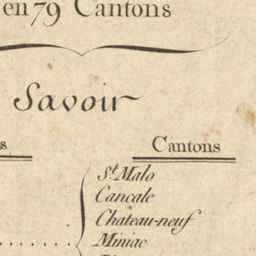 en 79 Cantons
Savoir
Cantons
St. Malo
Cancale
Chateau-neuf
Miniac